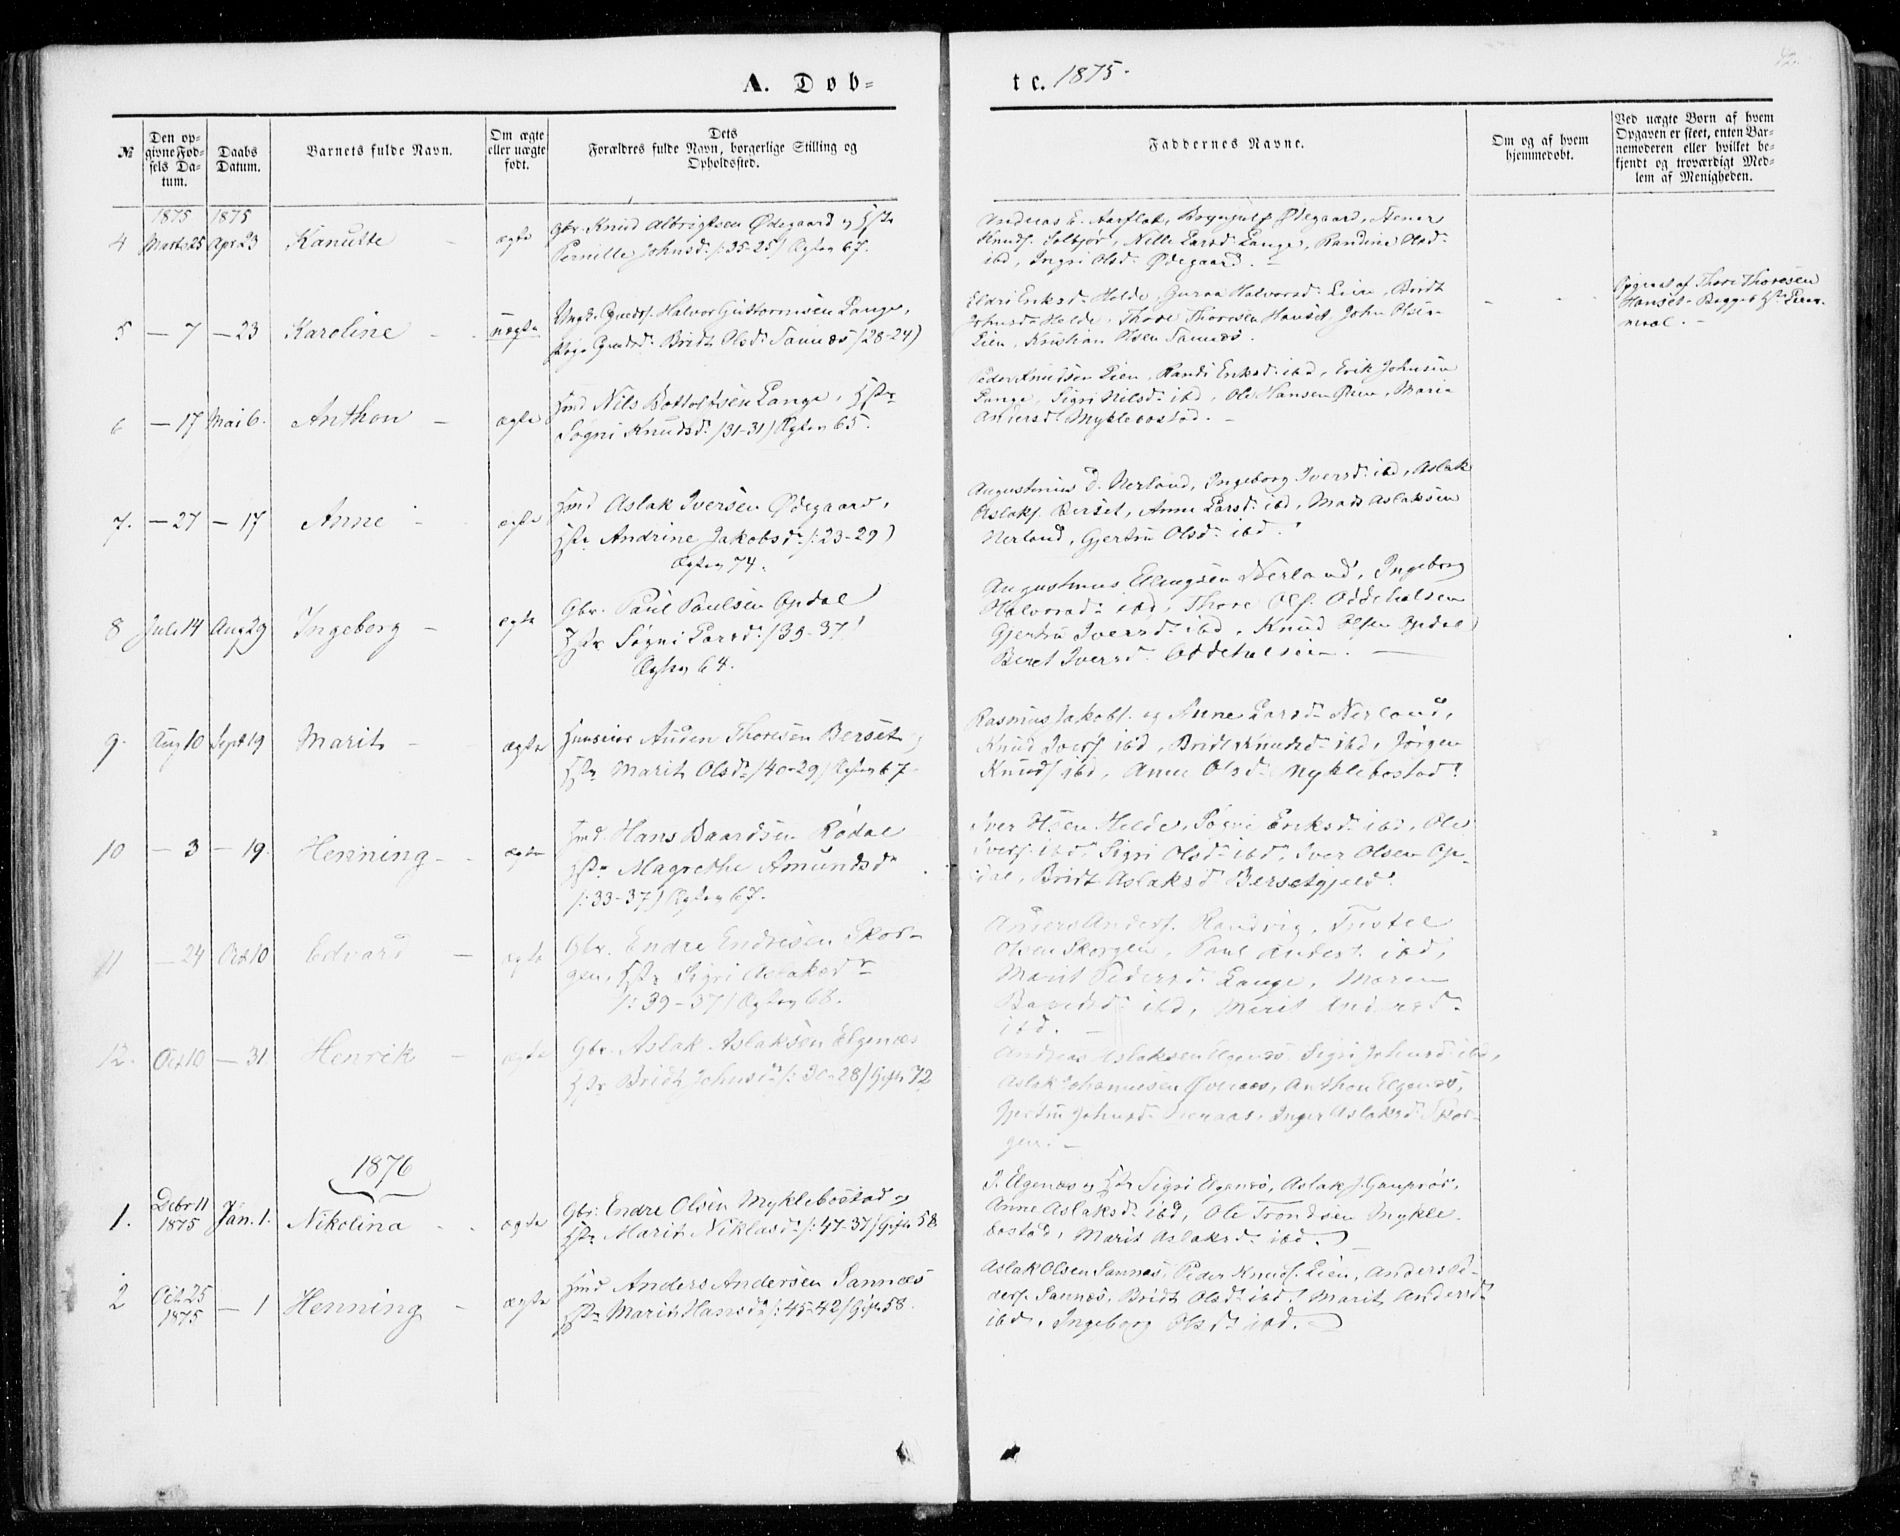 A. Døb-
te. 1875.
№
Den op-
givne Fød-
sels Da-
tum.
Daabs
Datum.
Barnets fulde Navn.
Om ægte
eller uægte
født.
Dets
Forældres fulde Navn, borgerlige Stilling og
Opholdssted.
Faddernes Navne.
Om og af hvem
hjemmedøbt.
Ved uægte Børn af hvem
Opgaven er skeet, enten Bar-
nemoderen eller hvilket be-
kjendt og troværdigt Med-
lem af Menigheden.
1875 1875
4 Marts 25 Apr 23 Kanutte - ægte
Gbr. Knud Albrigtsen Ødegaard og Hstr
Pernille Johnsd. /:35-25/ Ægtev 67.
Andreas E. Aarflot, Ødegaard, Stener
Knuds. Solbjør, Nille Larsd. Lange, Randine Olsd.
ibd, Ingri Olsd. Ødegaard. -
5 - 7 - 23 Karoline - uægte
Ungk. Gaards. Halvor Guttormsen Lange,
Pige Gaardsd. Bridt Olsd. Sannæs /28-24)
Eldri Eriksd. Helde, Guraa Halvorsd. Lien, Bridt
Johnsd. Helde, Thore Thoresen Hauset, John Olsen
Lien, Kristian Olsen Sannæs.
Opgivet af Thore Thoresen
Hauset. Begges 1ste Leier-
maal. -
6 - 17 Mai 6. Anthon - ægte
Hmd Nils Bottolfsen Lange, Hstr
Søgni Knudsd. /31-31) Ægtev 65.
Peder Knudsen Lien, Randi Eriksd. ibd, Erik Johnsen
Lange, Sigri Nilsd. ibd, Ole Hansen Øien, Maria
Andersd. Myklebostad. -
7. - 27 - 17 Anne - ægte
Hmd Aslak Iversen Ødegaard,
Hstr Andrine Jakobsd. /:23-29)
Ægtev 74.
Augustinius D. Nerland, Ingeborg Iversd. ibd, Aslak
Aslaks. Berset, Anne Larsd. ibd, Mads Aslaksen
Nerland, Gjertru Olsd. ibd.
8 Juli 14 Aug 29 Ingeborg - ægte
Gbr. Paul Paulsen Opdal
Hstr Søgni Larsd. /39-37/
Ægtev 64.
Augustinus Ellingsen Nerland, Ingeborg
Halvorsd. ibd, Thore Ols. Oddehalsen
Gjertru Iversd. ibd, Knud Olsen Opdal
Beret Iversd. Oddehalsen. -
9. Aug 10 Sept 19 Marit - ægte
Huseier Auden Thoresen Berset og
Hstr Marit Olsd. /40-29/ Ægtev 67.
Rasmus Jakobs. og Anne Larsd. Nerland,
Knud Ivers ibd, Bridt Knudsd. ibd, Jørgen
Knuds ibd, Anne Olsd. Myklebostad.
10 - 3 - 19. Henning - ægte
Hmd. Hans Baardsen Rødal
Hstr Magrethe Amundsd
/:33-37) Ægtev 67.
Iver Olsen Helde, Søgni Eriksd. ibd, Ole
Ivers. ibd, Sigri Olsd. ibd, Iver Olsen Op-
dal, Bridt Aslaksd Bersetgjeld.
11 - 24 Oct 10 Edvard - ægte
Gbr. Endre Endresen Skor-
gen, Hstr Sigri Aslaksdr
/:39-37/ Ægtev 68.
Anders Anders. Randvig, Tostel
Olsen Skorgen, Paul Anders. ibd,
Marit Pedersd. Lange, Maren
ibd, Marit Andersd.
ibd. -
12. Oct 10 - 31 Henrik - ægte
Gbr. Aslak Aslaksen Elgenæs
Hstr Bridt Johnsd. /:30-28/ Gift 72
Andreas Aslaksen Elgenæs, Sigri Johnsd. ibd,
Aslak Johannesen Øveraas, Anthon Elgenæs,
Gjertru Johnsd. Øveraas, Inger Aslaksd. Skor-
gen. -
1876
1. Debr 11
1875 Jan. 1. Nikolina - ægte
Gbr. Endre Olsen Myklebostad og
Hstr Marit Niklasd. /:47-37/ Gift 58
J. Elgenæs og Hstr Sigri Elgenæs, Aslak J. Gauprør,
Anne Aslaksd. ibd, Ole Trondsen Mykle-
bostad, Marit Aslaksd. ibd.
2 Oct. 25
1875 - 1 Henning - ægte
Hmd Anders Andersen Sannæs
Hstr Marit Hansd. /:45-42/ Gift 58.
Aslak Olsen Sannæs, Peder Knuds. Lien, Anders An-
ders. Sannæs, Bridt Olsd. ibd, Marit Andersd.
ibd, Ingeborg Olsd. ibd.